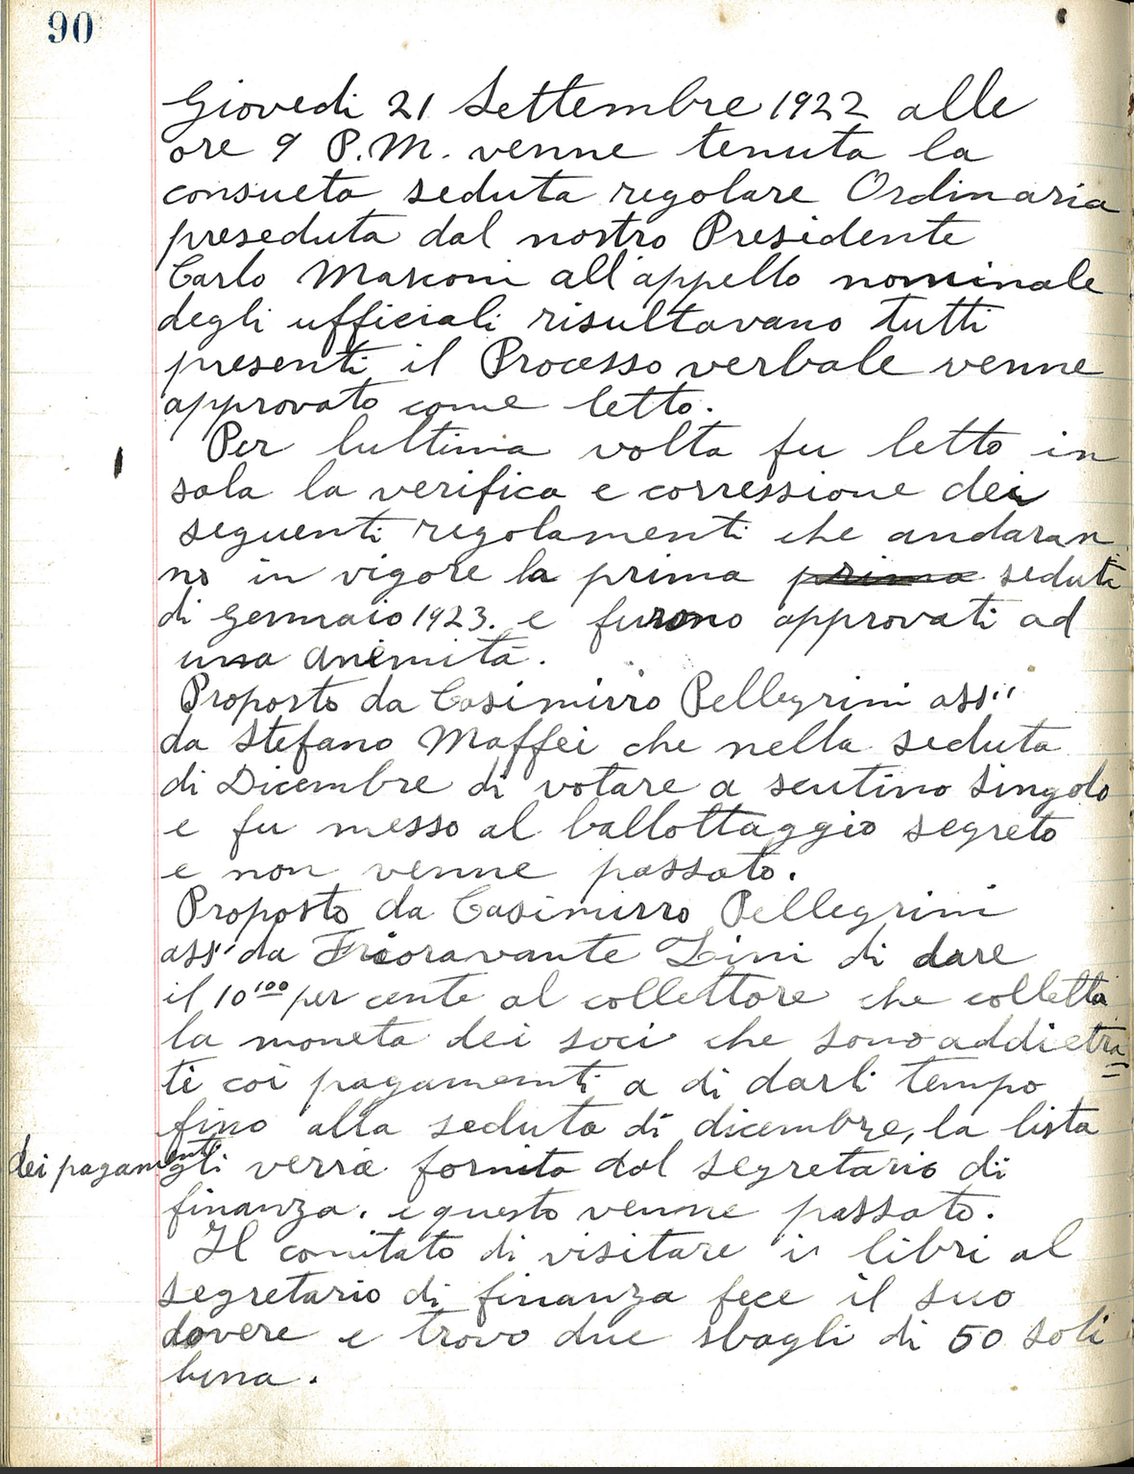 90
Giovedi 21 Settembre 1922 alle
ore 9 P.M. venne tenuta la
consueta seduta regolare Ordinaria
preseduta dal nostro Presidente
Carlo Marconi all'appello nominale
degli ufficiali risultavano tutti
presenti il Processo verbale venne
approvato come letto.
Per lultima volta fu letto in
sala la verifica e corressione dei
seguenti regolamenti che andaran
no in vigore la prima prima seduta
di Gennaio 1923. e furono approvati ad
una animita.
Proposto da Casimirro Pellegrini ass"
da Stefano Maffei che nella seduta
di Dicembre di votare a scutino singolo
e fu messo al ballottaggio segreto
e non venne passato.
Proposto da Casimirro Pellegrini
ass" da Fioravante Lini di dare
il 10¹⁰⁰ per cento al collettore che colletta
la moneta dei soci che sono addietra=
ti coi pagamenti a di darli tempo
fino alla seduta di dicembre, la lista
dei pagamenti gli verra fornita dal segretario di
finanza. e questo venne passato.
Il comitato di visitare i libri al
segretario di finanza fece il suo
dovere e trovo due sbagli di 50 soli
luna.